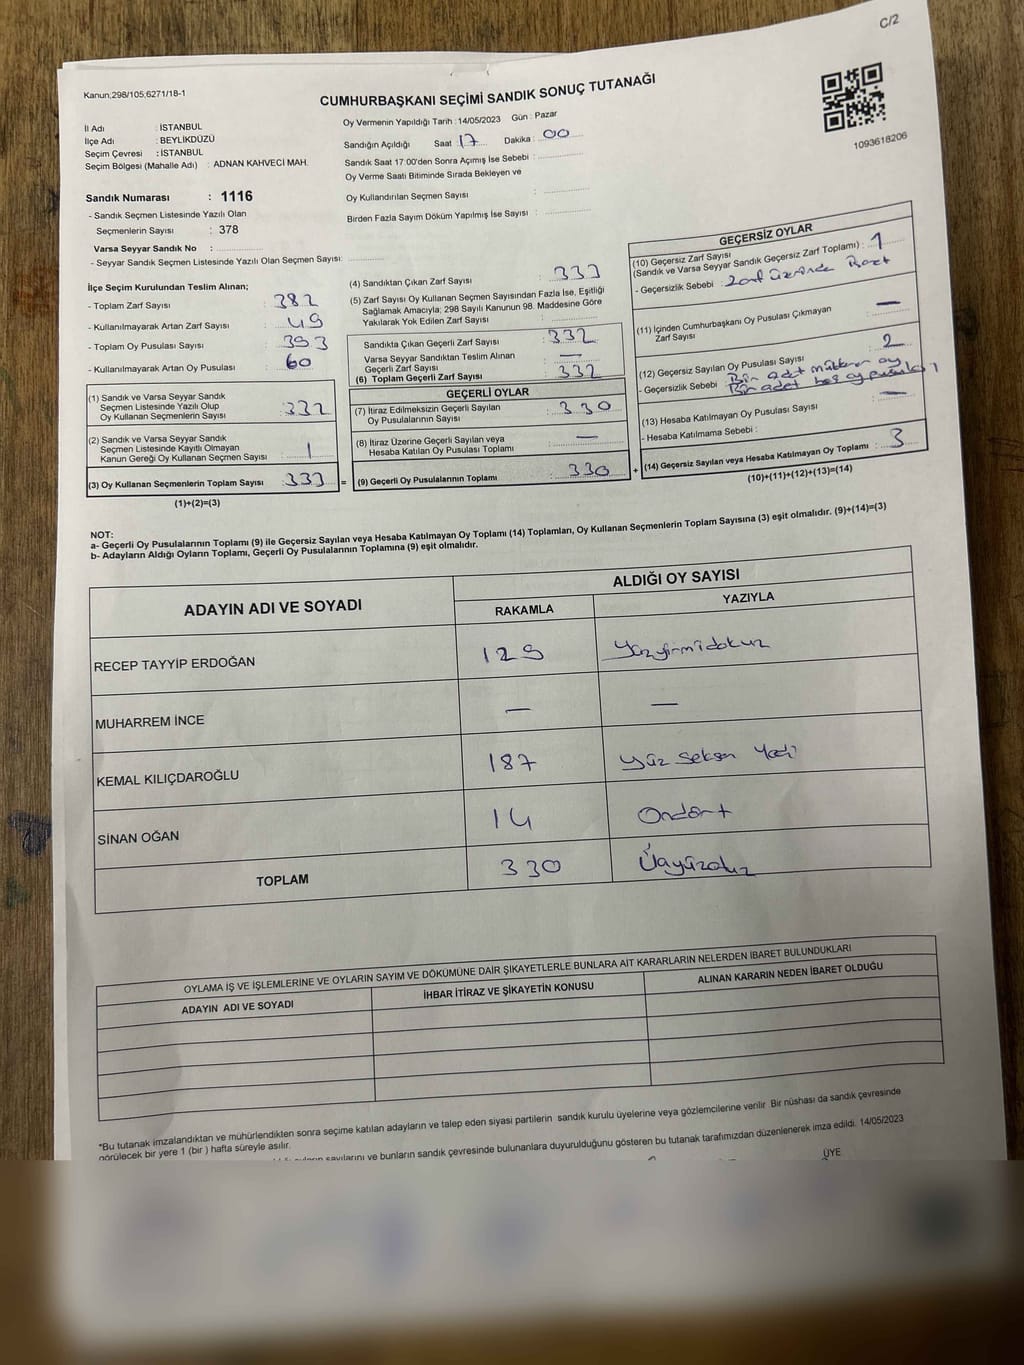 C/2
Kanun;298/105;6271/18-1
CUMHURBAŞKANI SEÇİMİ SANDIK SONUÇ TUTANAĞI
1093618206
İl Adı : İSTANBUL
İlçe Adı : BEYLİKDÜZÜ
Seçim Çevresi : İSTANBUL
Seçim Bölgesi (Mahalle Adı) : ADNAN KAHVECİ MAH.
Sandık Numarası : 1116
- Sandık Seçmen Listesinde Yazılı Olan
Seçmenlerin Sayısı : 378
Varsa Seyyar Sandık No :
- Seyyar Sandık Seçmen Listesinde Yazılı Olan Seçmen Sayısı:
Oy Vermenin Yapıldığı Tarih : 14/05/2023 Gün : Pazar
Sandığın Açıldığı Saat 17 Dakika : 00
Sandık Saat 17:00'den Sonra Açımış İse Sebebi :
Oy Verme Saati Bitiminde Sırada Bekleyen ve
Oy Kullandırılan Seçmen Sayısı :
Birden Fazla Sayım Döküm Yapılmış İse Sayısı :
İlçe Seçim Kurulundan Teslim Alınan;
- Toplam Zarf Sayısı : 382
- Kullanılmayarak Artan Zarf Sayısı : 49
- Toplam Oy Pusulası Sayısı : 393
- Kullanılmayarak Artan Oy Pusulası : 60
(1) Sandık ve Varsa Seyyar Sandık
Seçmen Listesinde Yazılı Olup
Oy Kullanan Seçmenlerin Sayısı : 332
(2) Sandık ve Varsa Seyyar Sandık
Seçmen Listesinde Kayıtlı Olmayan
Kanun Gereği Oy Kullanan Seçmen Sayısı : 1
(3) Oy Kullanan Seçmenlerin Toplam Sayısı : 333 =
(1)+(2)=(3)
(4) Sandıktan Çıkan Zarf Sayısı : 333
(5) Zarf Sayısı Oy Kullanan Seçmen Sayısından Fazla İse, Eşitliği
Sağlamak Amacıyla; 298 Sayılı Kanunun 98. Maddesine Göre
Yakılarak Yok Edilen Zarf Sayısı :
Sandıkta Çıkan Geçerli Zarf Sayısı : 332
Varsa Seyyar Sandıktan Teslim Alınan
Geçerli Zarf Sayısı : —
(6) Toplam Geçerli Zarf Sayısı : 332
GEÇERLİ OYLAR
(7) İtiraz Edilmeksizin Geçerli Sayılan
Oy Pusulalarının Sayısı : 330
(8) İtiraz Üzerine Geçerli Sayılan veya
Hesaba Katılan Oy Pusulası Toplamı : —
(9) Geçerli Oy Pusulalarının Toplamı : 330 +
GEÇERSİZ OYLAR
(10) Geçersiz Zarf Sayısı
(Sandık ve Varsa Seyyar Sandık Geçersiz Zarf Toplamı) : 1
- Geçersizlik Sebebi : Zarf üzerinde
(11) İçinden Cumhurbaşkanı Oy Pusulası Çıkmayan
Zarf Sayısı : —
(12) Geçersiz Sayılan Oy Pusulası Sayısı : 2
- Geçersizlik Sebebi : Bir adet mükerrer oy
Bir adet boş oy pusulası
(13) Hesaba Katılmayan Oy Pusulası Sayısı : —
- Hesaba Katılmama Sebebi :
(14) Geçersiz Sayılan veya Hesaba Katılmayan Oy Toplamı : 3
(10)+(11)+(12)+(13)=(14)
NOT:
a- Geçerli Oy Pusulalarının Toplamı (9) ile Geçersiz Sayılan veya Hesaba Katılmayan Oy Toplamı (14) Toplamları, Oy Kullanan Seçmenlerin Toplam Sayısına (3) eşit olmalıdır. (9)+(14)=(3)
b- Adayların Aldığı Oyların Toplamı, Geçerli Oy Pusulalarının Toplamına (9) eşit olmalıdır.
ADAYIN ADI VE SOYADI ALDIĞI OY SAYISI
RAKAMLA YAZIYLA
RECEP TAYYİP ERDOĞAN 129 Yüzyirmidokuz
MUHARREM İNCE — —
KEMAL KILIÇDAROĞLU 187 Yüz seksen Yedi
SİNAN OĞAN 14 Ondört
TOPLAM 330 Üçyüzotuz
OYLAMA İŞ VE İŞLEMLERİNE VE OYLARIN SAYIM VE DÖKÜMÜNE DAİR ŞİKAYETLERLE BUNLARA AİT KARARLARIN NELERDEN İBARET BULUNDUKLARI
ADAYIN ADI VE SOYADI İHBAR İTİRAZ VE ŞİKAYETİN KONUSU ALINAN KARARIN NEDEN İBARET OLDUĞU
*Bu tutanak imzalandıktan ve mühürlendikten sonra seçime katılan adayların ve talep eden siyasi partilerin sandık kurulu üyelerine veya gözlemcilerine verilir Bir nüshası da sandık çevresinde
görülecek bir yere 1 (bir ) hafta süreyle asılır.
sayılarını ve bunların sandık çevresinde bulunanlara duyurulduğunu gösteren bu tutanak tarafımızdan düzenlenerek imza edildi. 14/05/2023
ÜYE